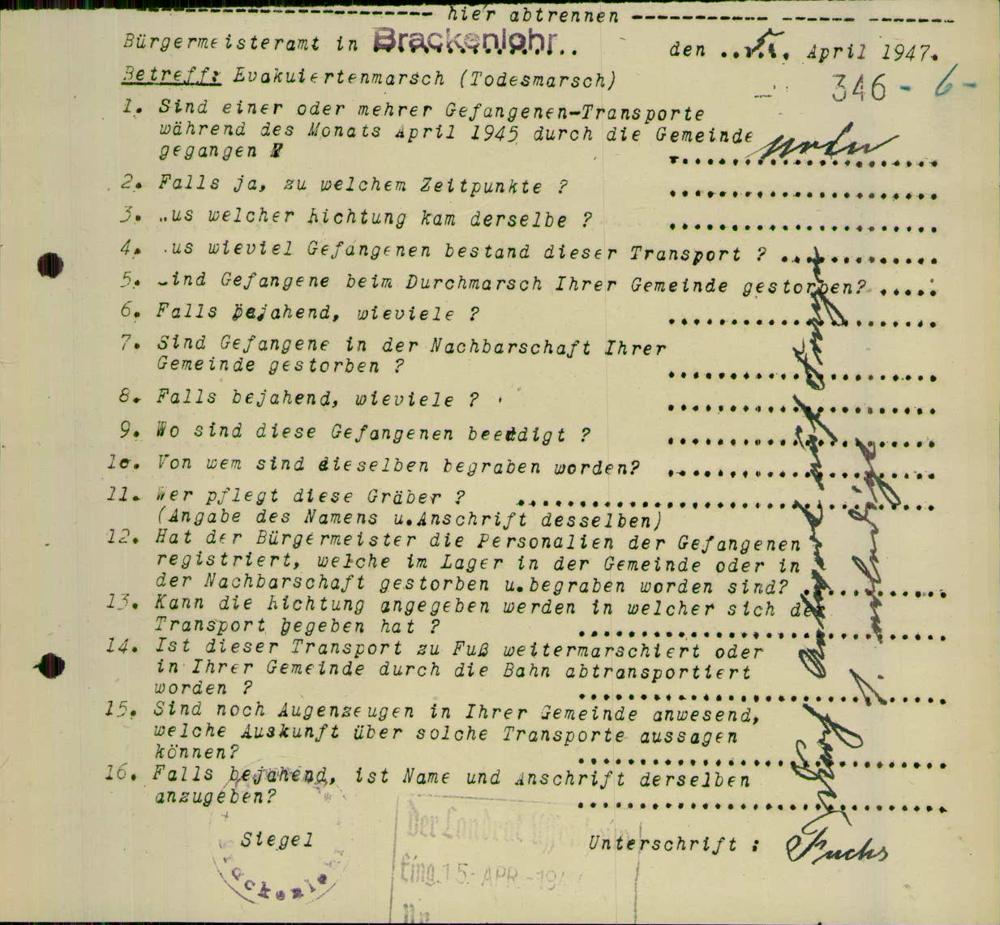 ------------------ hier abtrennen ------------ ------ -------
Bürgermeisteramt in Brackenlohr.. den ..5.. April 1947.
Betreff: Evakuiertenmarsch (Todesmarsch)
346 - 6 -
1. Sind einer oder mehrer Gefangenen-Transporte
während des Monats April 1945 durch die Gemeinde
gegangen ? nein
2. Falls ja, zu welchem Zeitpunkte ? ....................
3. .us welcher Richtung kam derselbe ? ....................
4. .us wieviel Gefangenen bestand dieser Transport ? ............
5. .ind Gefangene beim Durchmarsch Ihrer Gemeinde gestorben? .....
6. Falls bejahend, wieviele ? ....................
7. Sind Gefangene in der Nachbarschaft Ihrer
Gemeinde gestorben ? ....................
8. Falls bejahend, wieviele ? ....................
9. Wo sind diese Gefangenen beerdigt ? ....................
1o. Von wem sind dieselben begraben worden? ....................
11. Wer pflegt diese Gräber ? ....................
(Angabe des Namens u.Anschrift desselben)
12. Hat der Bürgermeister die Personalien der Gefangenen
registriert, welche im Lager in der Gemeinde oder in
der Nachbarschaft gestorben u.begraben worden sind? ............
13. Kann die Richtung angegeben werden in welcher sich de
Transport begeben hat ? ....................
14. Ist dieser Transport zu Fuß weitermarschiert oder
in Ihrer Gemeinde durch die Bahn abtransportiert
worden ? ....................
15. Sind noch Augenzeugen in Ihrer Gemeinde anwesend,
welche Auskunft über solche Transporte aussagen
können? ....................
16. Falls bejahend, ist Name und Anschrift derselben
anzugeben? ....................
Durch Antwort auf
erledigt
Siegel
Brackenlohr
Der Landrat Uffenheim
Eing. 15. APR. 194
Nr.
Unterschrift : Fuchs